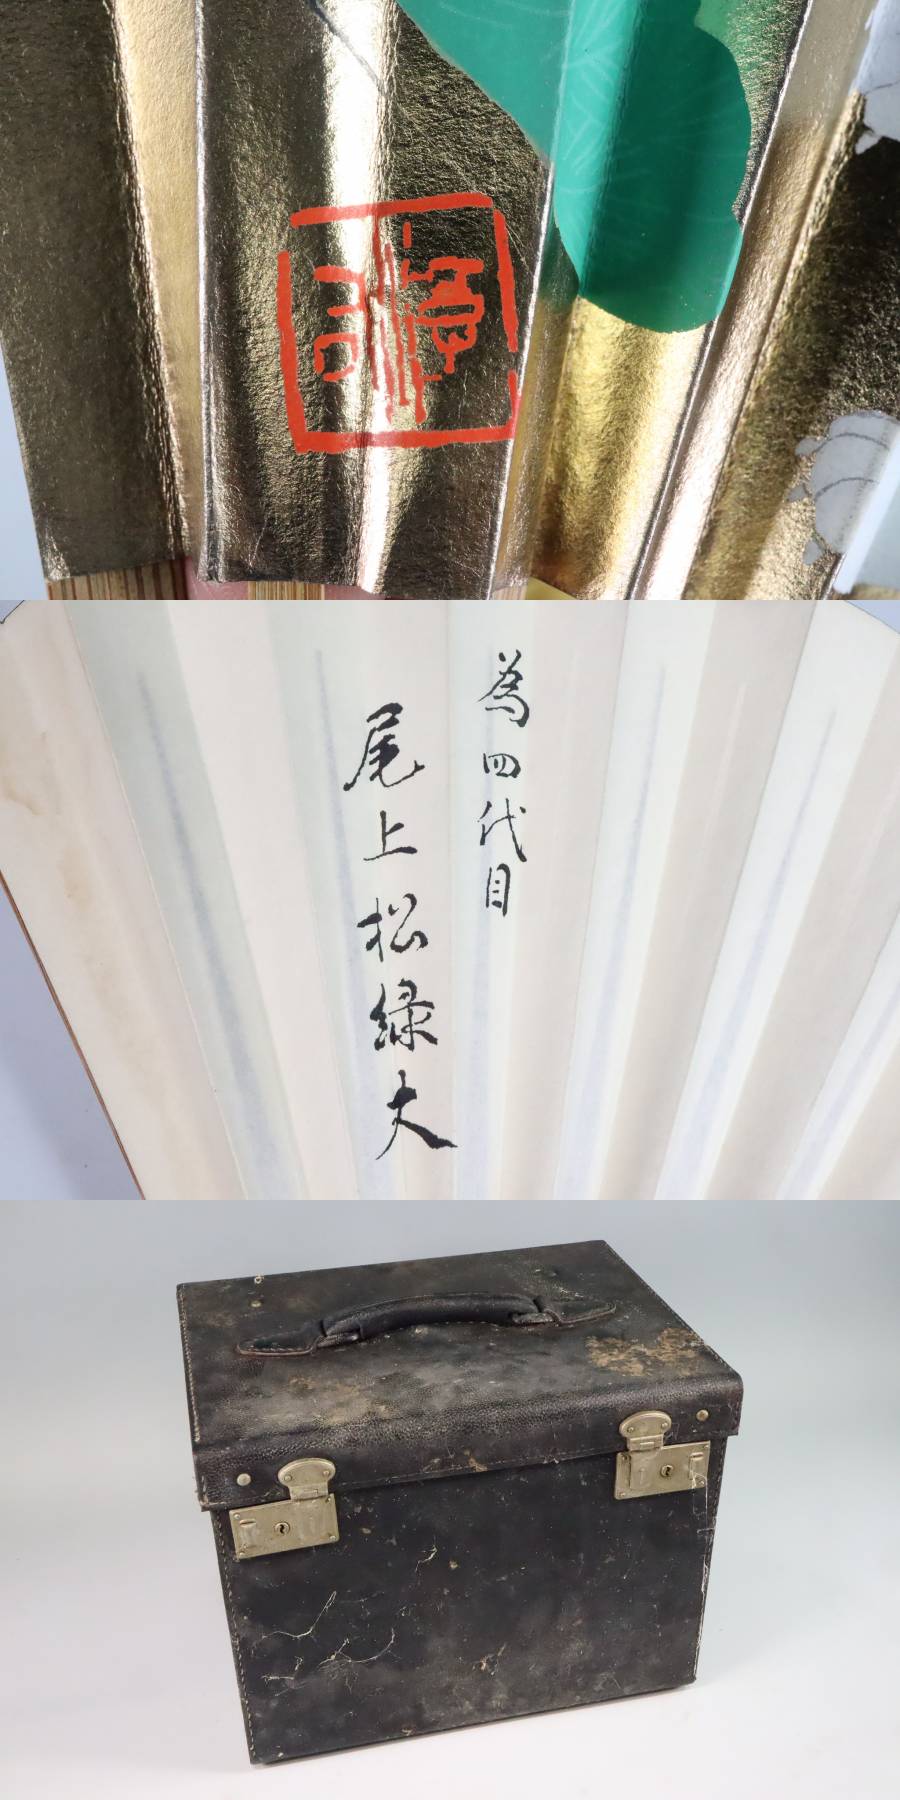 為四代目
尾上松緑丈